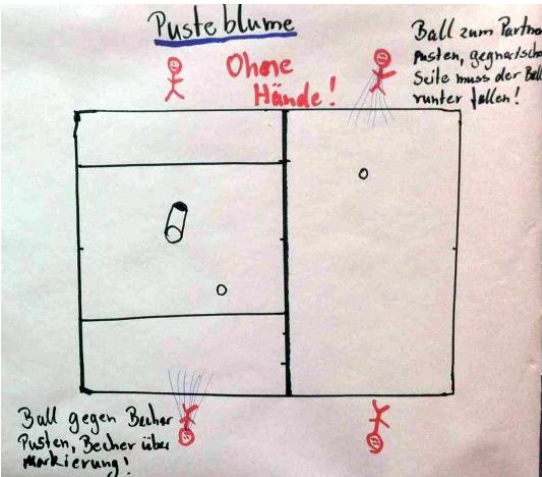 Pusteblume
Ohne
Hände!
Ball zum
pusten,
Seite muss der
runter fallen!
Ball gegen Becher
Pusten, Becher über
Markierung!